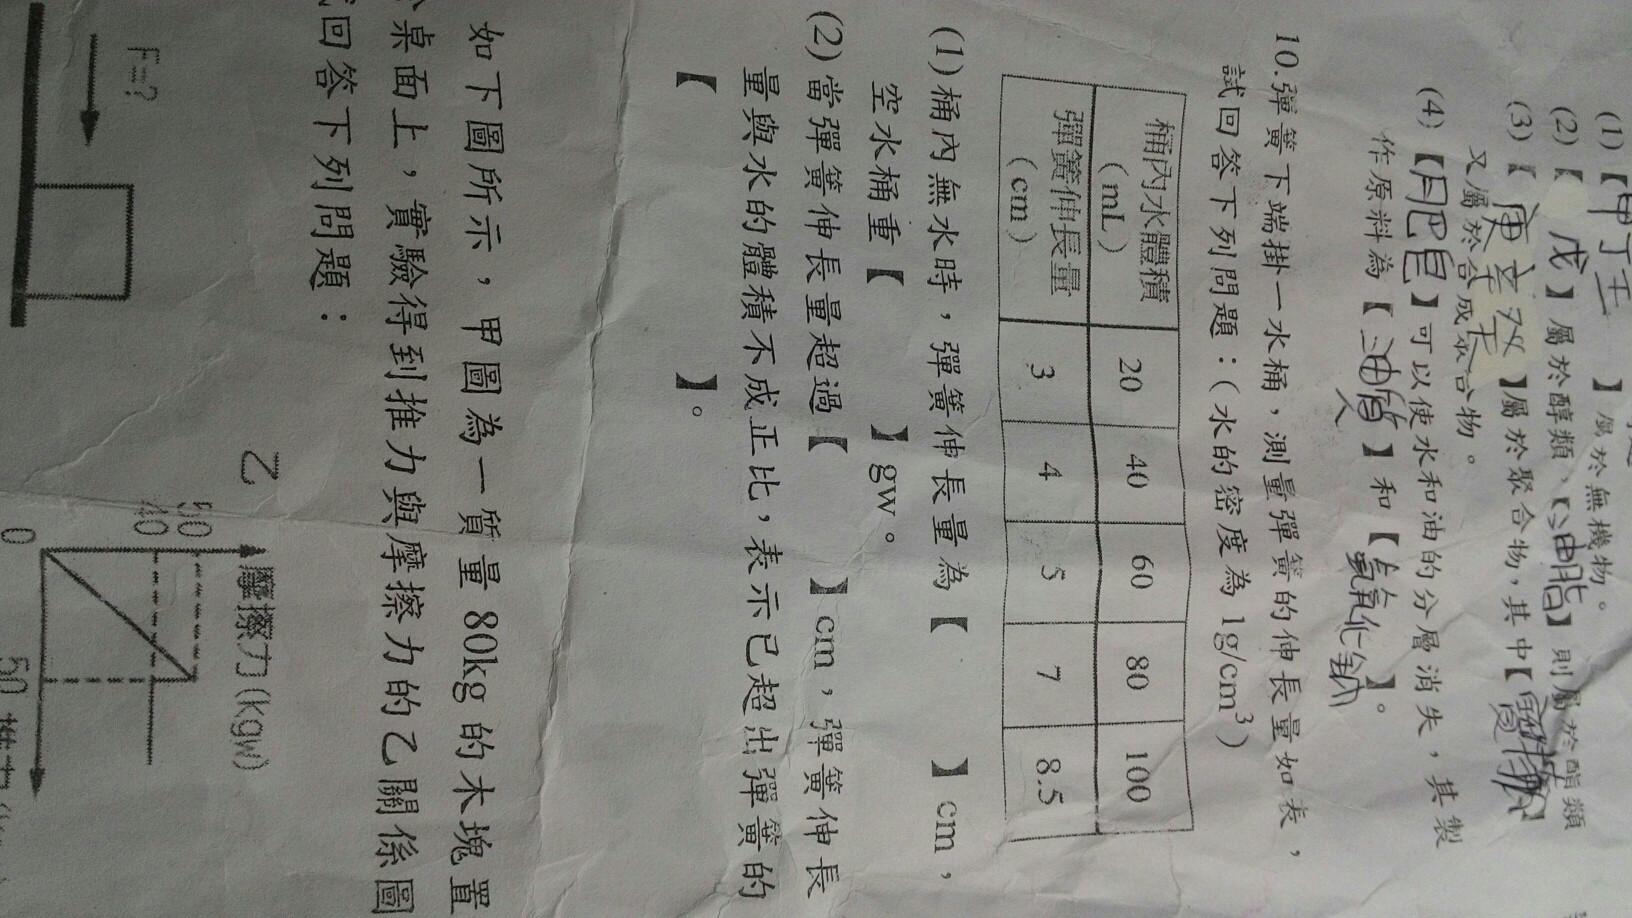 (1)【甲丁壬 】屬於無機物。
(2)【 戊】屬於醇類、【油脂】則屬於酯類
(3)【庚辛 】屬於聚合物,其中【 】
又屬於合成聚合物。
(4)【肥皂】可以使水和油的分層消失,其製
作原料為【油脂】和【氫氧化鈉】。
10.彈簧下端掛一水桶,測量彈簧的伸長量如表,
試回答下列問題:(水的密度為 1g/cm³)
桶內水體積 (mL) 20 40 60 80 100
彈簧伸長量 (cm) 3 4 5 7 8.5
(1)桶內無水時,彈簧伸長量為【 】cm,
空水桶重【 】gw。
(2)當彈簧伸長量超過【 】cm,彈簧伸長
量與水的體積不成正比,表示已超出彈簧的
【 】。
如下圖所示,甲圖為一質量 80kg 的木塊置
桌面上,實驗得到推力與摩擦力的乙關係圖
回答下列問題:
F=?
乙
摩擦力(kgw)
50
40
0
50
推力